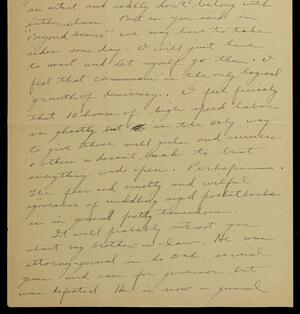 an artist and really don't belong with
either class. But as you said in
"Beyond Desire" we may have to take
sides some day. I will just have
to wait and let myself go then. I
feel that communism is the only logical
growth of democracy. I feel fiercely
that 10 hours of high speed labor
is ghastly but is the only way
to give those mill girls and miners
& others a decent break to bust
everything wide open. Perhaps
The fear and cruelty and wilful
ignorance of middling aged pocketbooks
is in general pretty
It will probably interest you
about my brother-in-law. He was
attorney-general in So. Dak. several
years and ran for governor but
was defeated. He is now in general